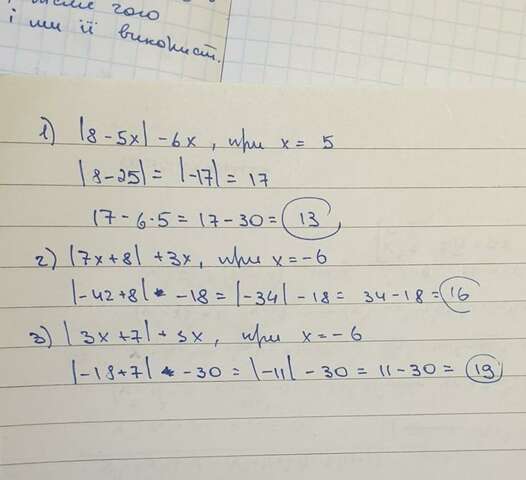 чого
і ми її використ.
1) |8-5x| -6x, при x= 5
|8-25|= |-17|= 17
17-6·5=17-30= 13
2) |7x+8| +3x, при x=-6
|-42+8| -18=|-34| -18= 34-18= 16
3) |3x+7|+5x, при x=-6
|-18+7| -30= |-11| -30= 11-30= 19